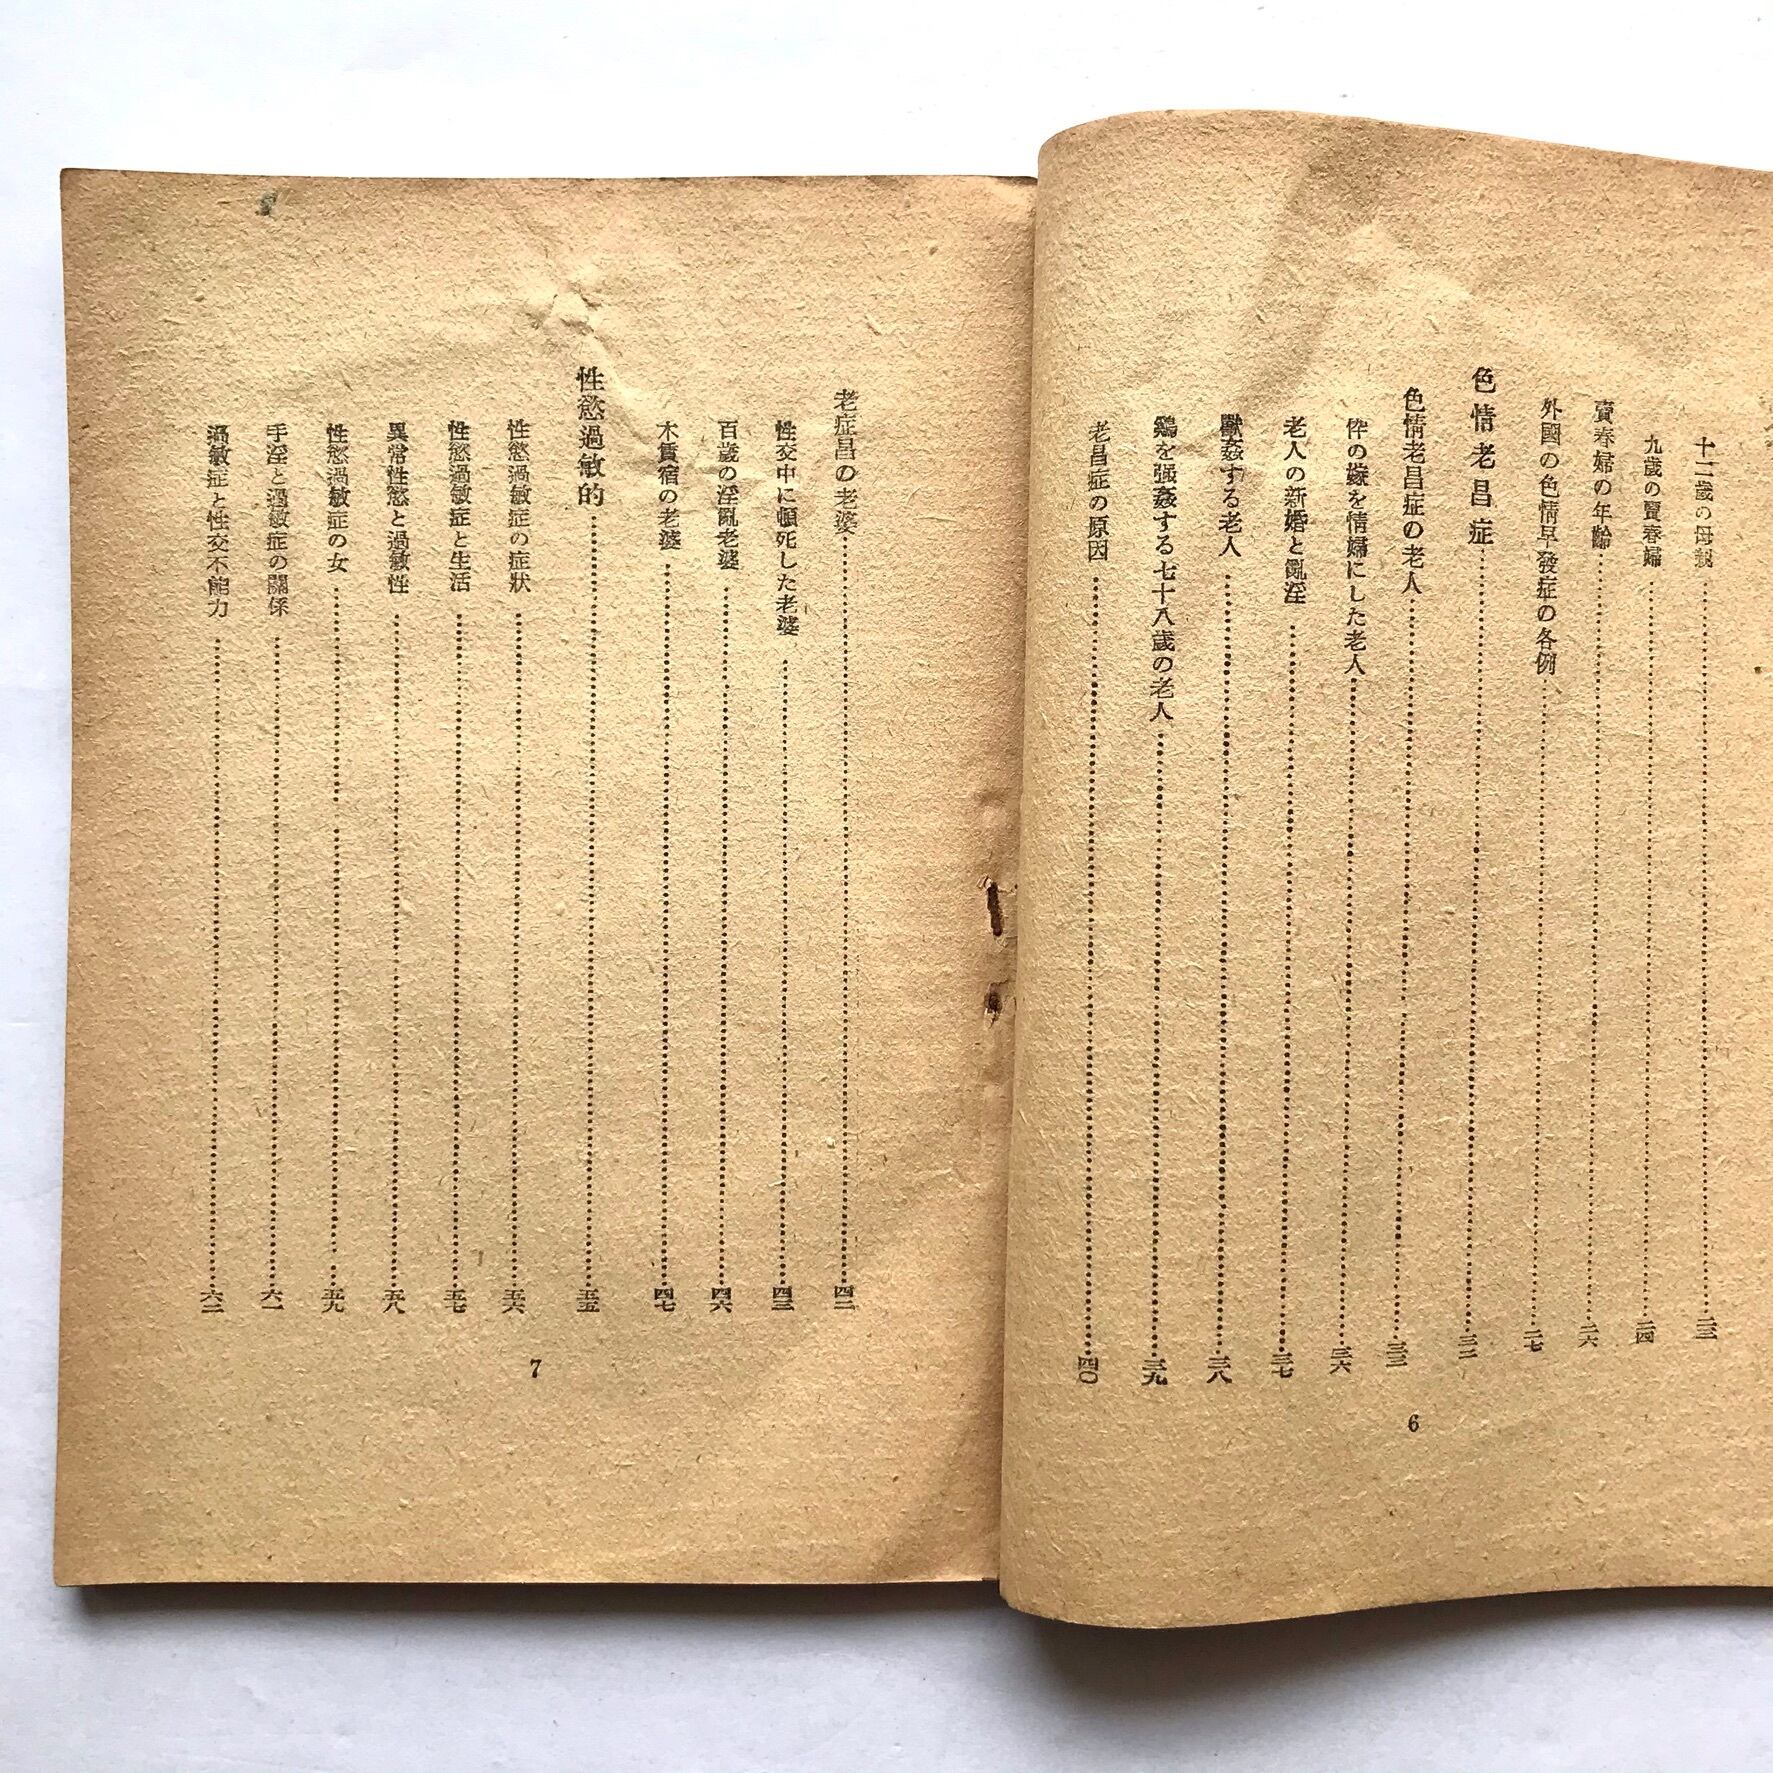 十二歳の母親……二三
九歳の賣春婦……二四
賣春婦の年齢……二六
外國の色情早發症の各例……二七
色情老昌症……三二
色情老昌症の老人……三三
伜の嫁を情婦にした老人……三六
老人の新婚と亂淫……三七
獸姦する老人……三八
鷄を强姦する七十八歳の老人……三九
老昌症の原因……四〇
6
老症昌の老婆……四二
性交中に頓死した老婆……四三
百歳の淫亂老婆……四六
木賃宿の老婆……四七
性慾過敏的……五五
性慾過敏症の症狀……五六
性慾過敏症と生活……五七
異常性慾と過敏性……五八
性慾過敏症の女……五九
手淫と過敏症の關係……六一
過敏症と性交不能力……六二
7